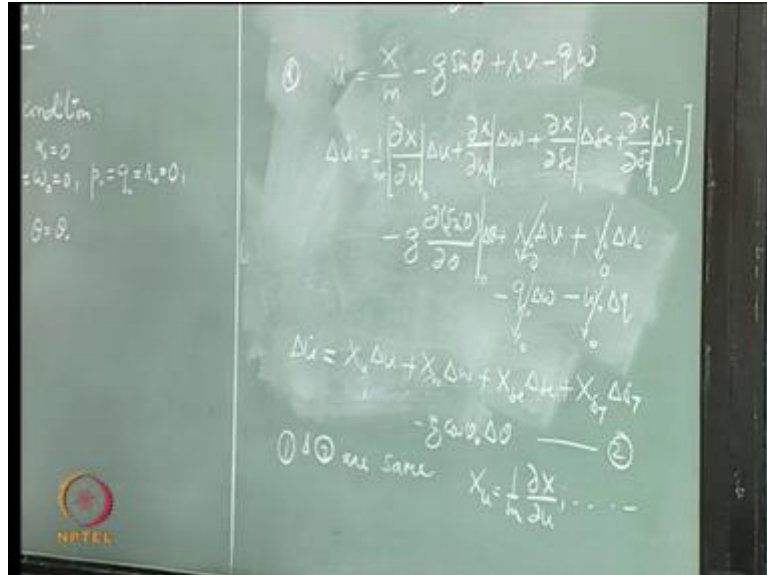 condition:
v₀=0
=ω₀=0, p₀=q₀=r₀=0,
θ=θ₀
u̇ = X/m - g sinθ + rv - qω
Δu̇ = 1/m [∂X/∂u|₀ Δu + ∂X/∂ω|₀ Δω + ∂X/∂δe|₀ Δδe + ∂X/∂δT|₀ ΔδT]
- g ∂(sinθ)/∂θ|₀ Δθ + r₀ Δv + v₀ Δr
0 0
- q₀ Δω - ω₀ Δq
0 0
Δu̇ = XᵤΔu + X_ωΔω + X_δe Δδe + X_δT ΔδT
- g cosθ₀ Δθ —— ②
① & ② are same
Xᵤ = 1/m ∂X/∂u, ·····
NPTEL